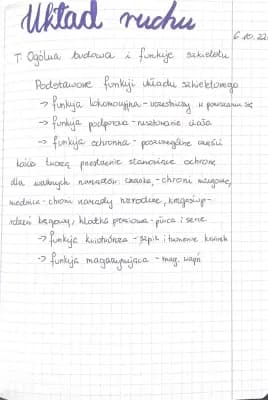 Układ ruchu
6.10.22
T: Ogólna budowa i funkcje szkieletu
Podstawowe funkcji układu szkieletowego
→ funkcja lokomocyjna - uczestniczy w poruszaniu się
→ funkcja podporowa - rusztowanie ciała
→ funkcja ochronna - poszczególne części
kośća tworzą przestrzenie stanowiące ochronę
dla ważnych narządów: czaszka - chroni mózgowie,
miednica - chroni narządy narodcze, kręgosłup -
rdzeń kręgowy, klatka piersiowa - płuca i serce.
→ funkcja krwiotwórcza - szpik i tworzenie krwinek
→ funkcja magazynująca - mag. wapń